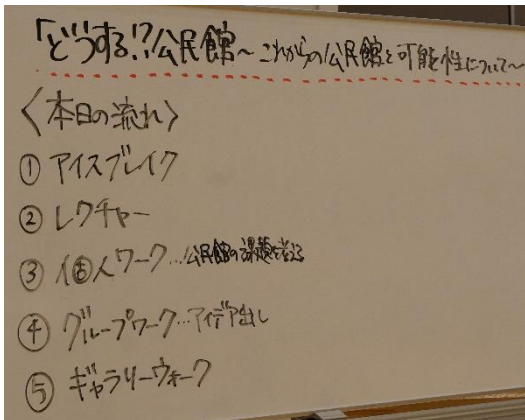 「どうする!?公民館～これからの公民館と可能性について～
〈本日の流れ〉
① アイスブレイク
② レクチャー
③ 個人ワーク…公民館の課題を考える
④ グループワーク…アイデア出し
⑤ ギャラリーウォーク